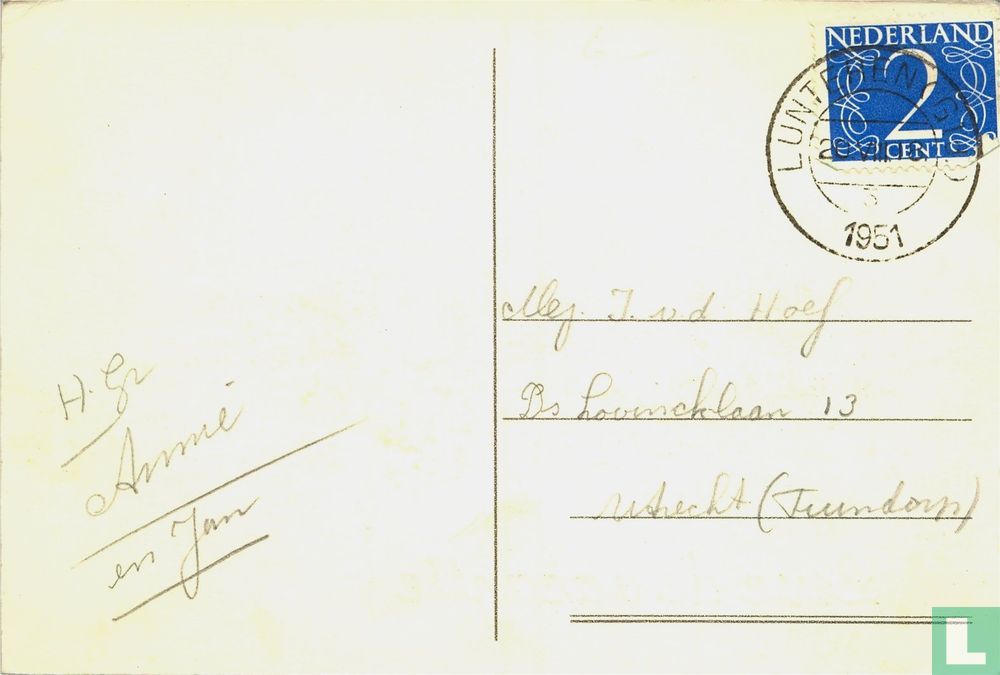 NEDERLAND
2
CENT
LUNTEREN (GLD)
1951
H. Gr
Annie
en Jan
Mej. J. v d Hoef
Ds Lovincklaan 13
Utrecht (Tuindorp)
L